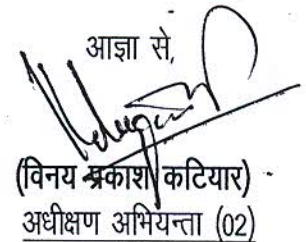 आज्ञा से,
(विनय प्रकाश कटियार)
अधीक्षण अभियन्ता (02)